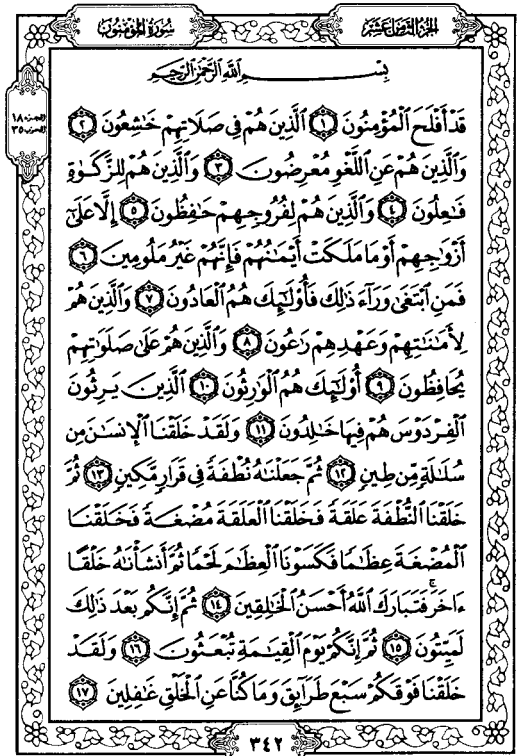 الجزء الثامن عشر
سورة المؤمنون
الجزء ١٨
الحزب ٣٥
بِسْمِ اللَّهِ الرَّحْمَٰنِ الرَّحِيمِ
قَدْ أَفْلَحَ الْمُؤْمِنُونَ ١ الَّذِينَ هُمْ فِي صَلَاتِهِمْ خَٰشِعُونَ ٢
وَالَّذِينَ هُمْ عَنِ اللَّغْوِ مُعْرِضُونَ ٣ وَالَّذِينَ هُمْ لِلزَّكَوٰةِ
فَٰعِلُونَ ٤ وَالَّذِينَ هُمْ لِفُرُوجِهِمْ حَٰفِظُونَ ٥ إِلَّا عَلَىٰ
أَزْوَٰجِهِمْ أَوْ مَا مَلَكَتْ أَيْمَٰنُهُمْ فَإِنَّهُمْ غَيْرُ مَلُومِينَ ٦
فَمَنِ ابْتَغَىٰ وَرَآءَ ذَٰلِكَ فَأُو۟لَٰٓئِكَ هُمُ الْعَادُونَ ٧ وَالَّذِينَ هُمْ
لِأَمَٰنَٰتِهِمْ وَعَهْدِهِمْ رَٰعُونَ ٨ وَالَّذِينَ هُمْ عَلَىٰ صَلَوَٰتِهِمْ
يُحَافِظُونَ ٩ أُو۟لَٰٓئِكَ هُمُ الْوَٰرِثُونَ ١٠ الَّذِينَ يَرِثُونَ
الْفِرْدَوْسَ هُمْ فِيهَا خَٰلِدُونَ ١١ وَلَقَدْ خَلَقْنَا الْإِنسَٰنَ مِن
سُلَٰلَةٍ مِّن طِينٍ ١٢ ثُمَّ جَعَلْنَٰهُ نُطْفَةً فِي قَرَارٍ مَّكِينٍ ١٣ ثُمَّ
خَلَقْنَا النُّطْفَةَ عَلَقَةً فَخَلَقْنَا الْعَلَقَةَ مُضْغَةً فَخَلَقْنَا
الْمُضْغَةَ عِظَٰمًا فَكَسَوْنَا الْعِظَٰمَ لَحْمًا ثُمَّ أَنشَأْنَٰهُ خَلْقًا
ءَاخَرَ ۚ فَتَبَارَكَ اللَّهُ أَحْسَنُ الْخَٰلِقِينَ ١٤ ثُمَّ إِنَّكُم بَعْدَ ذَٰلِكَ
لَمَيِّتُونَ ١٥ ثُمَّ إِنَّكُمْ يَوْمَ الْقِيَٰمَةِ تُبْعَثُونَ ١٦ وَلَقَدْ
خَلَقْنَا فَوْقَكُمْ سَبْعَ طَرَآئِقَ وَمَا كُنَّا عَنِ الْخَلْقِ غَٰفِلِينَ ١٧
٣٤٢